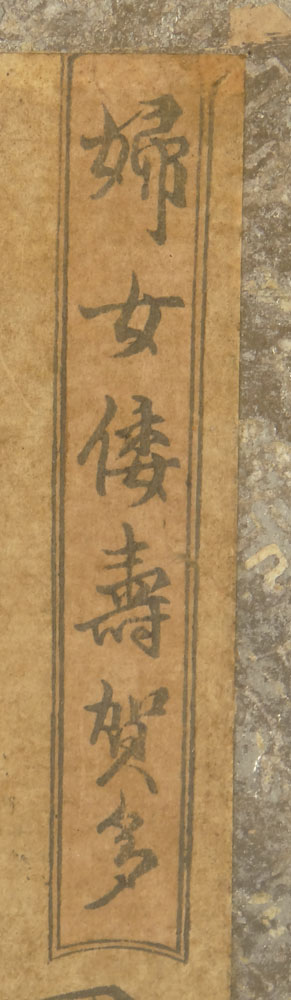 婦女倭壽賀多